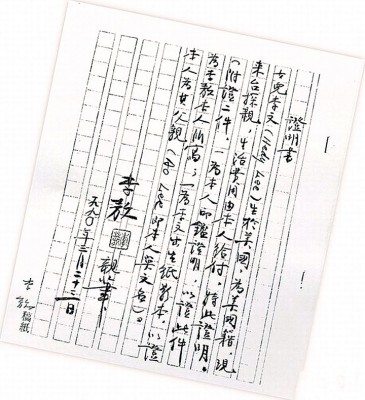 證明書
女兒李文(Hedy Lee)生於美國,為美國籍,現
來台探親,生活費用由本人給付,特此證明。
(附證二件,一為本人印鑑證明,以證此件
為李敖本人所寫;一為李文出生紙影本,以證
本人為其父親(Ao Lee即本人英文名)。
李敖
親筆
一九九〇年三月二十二日
李敖稿紙